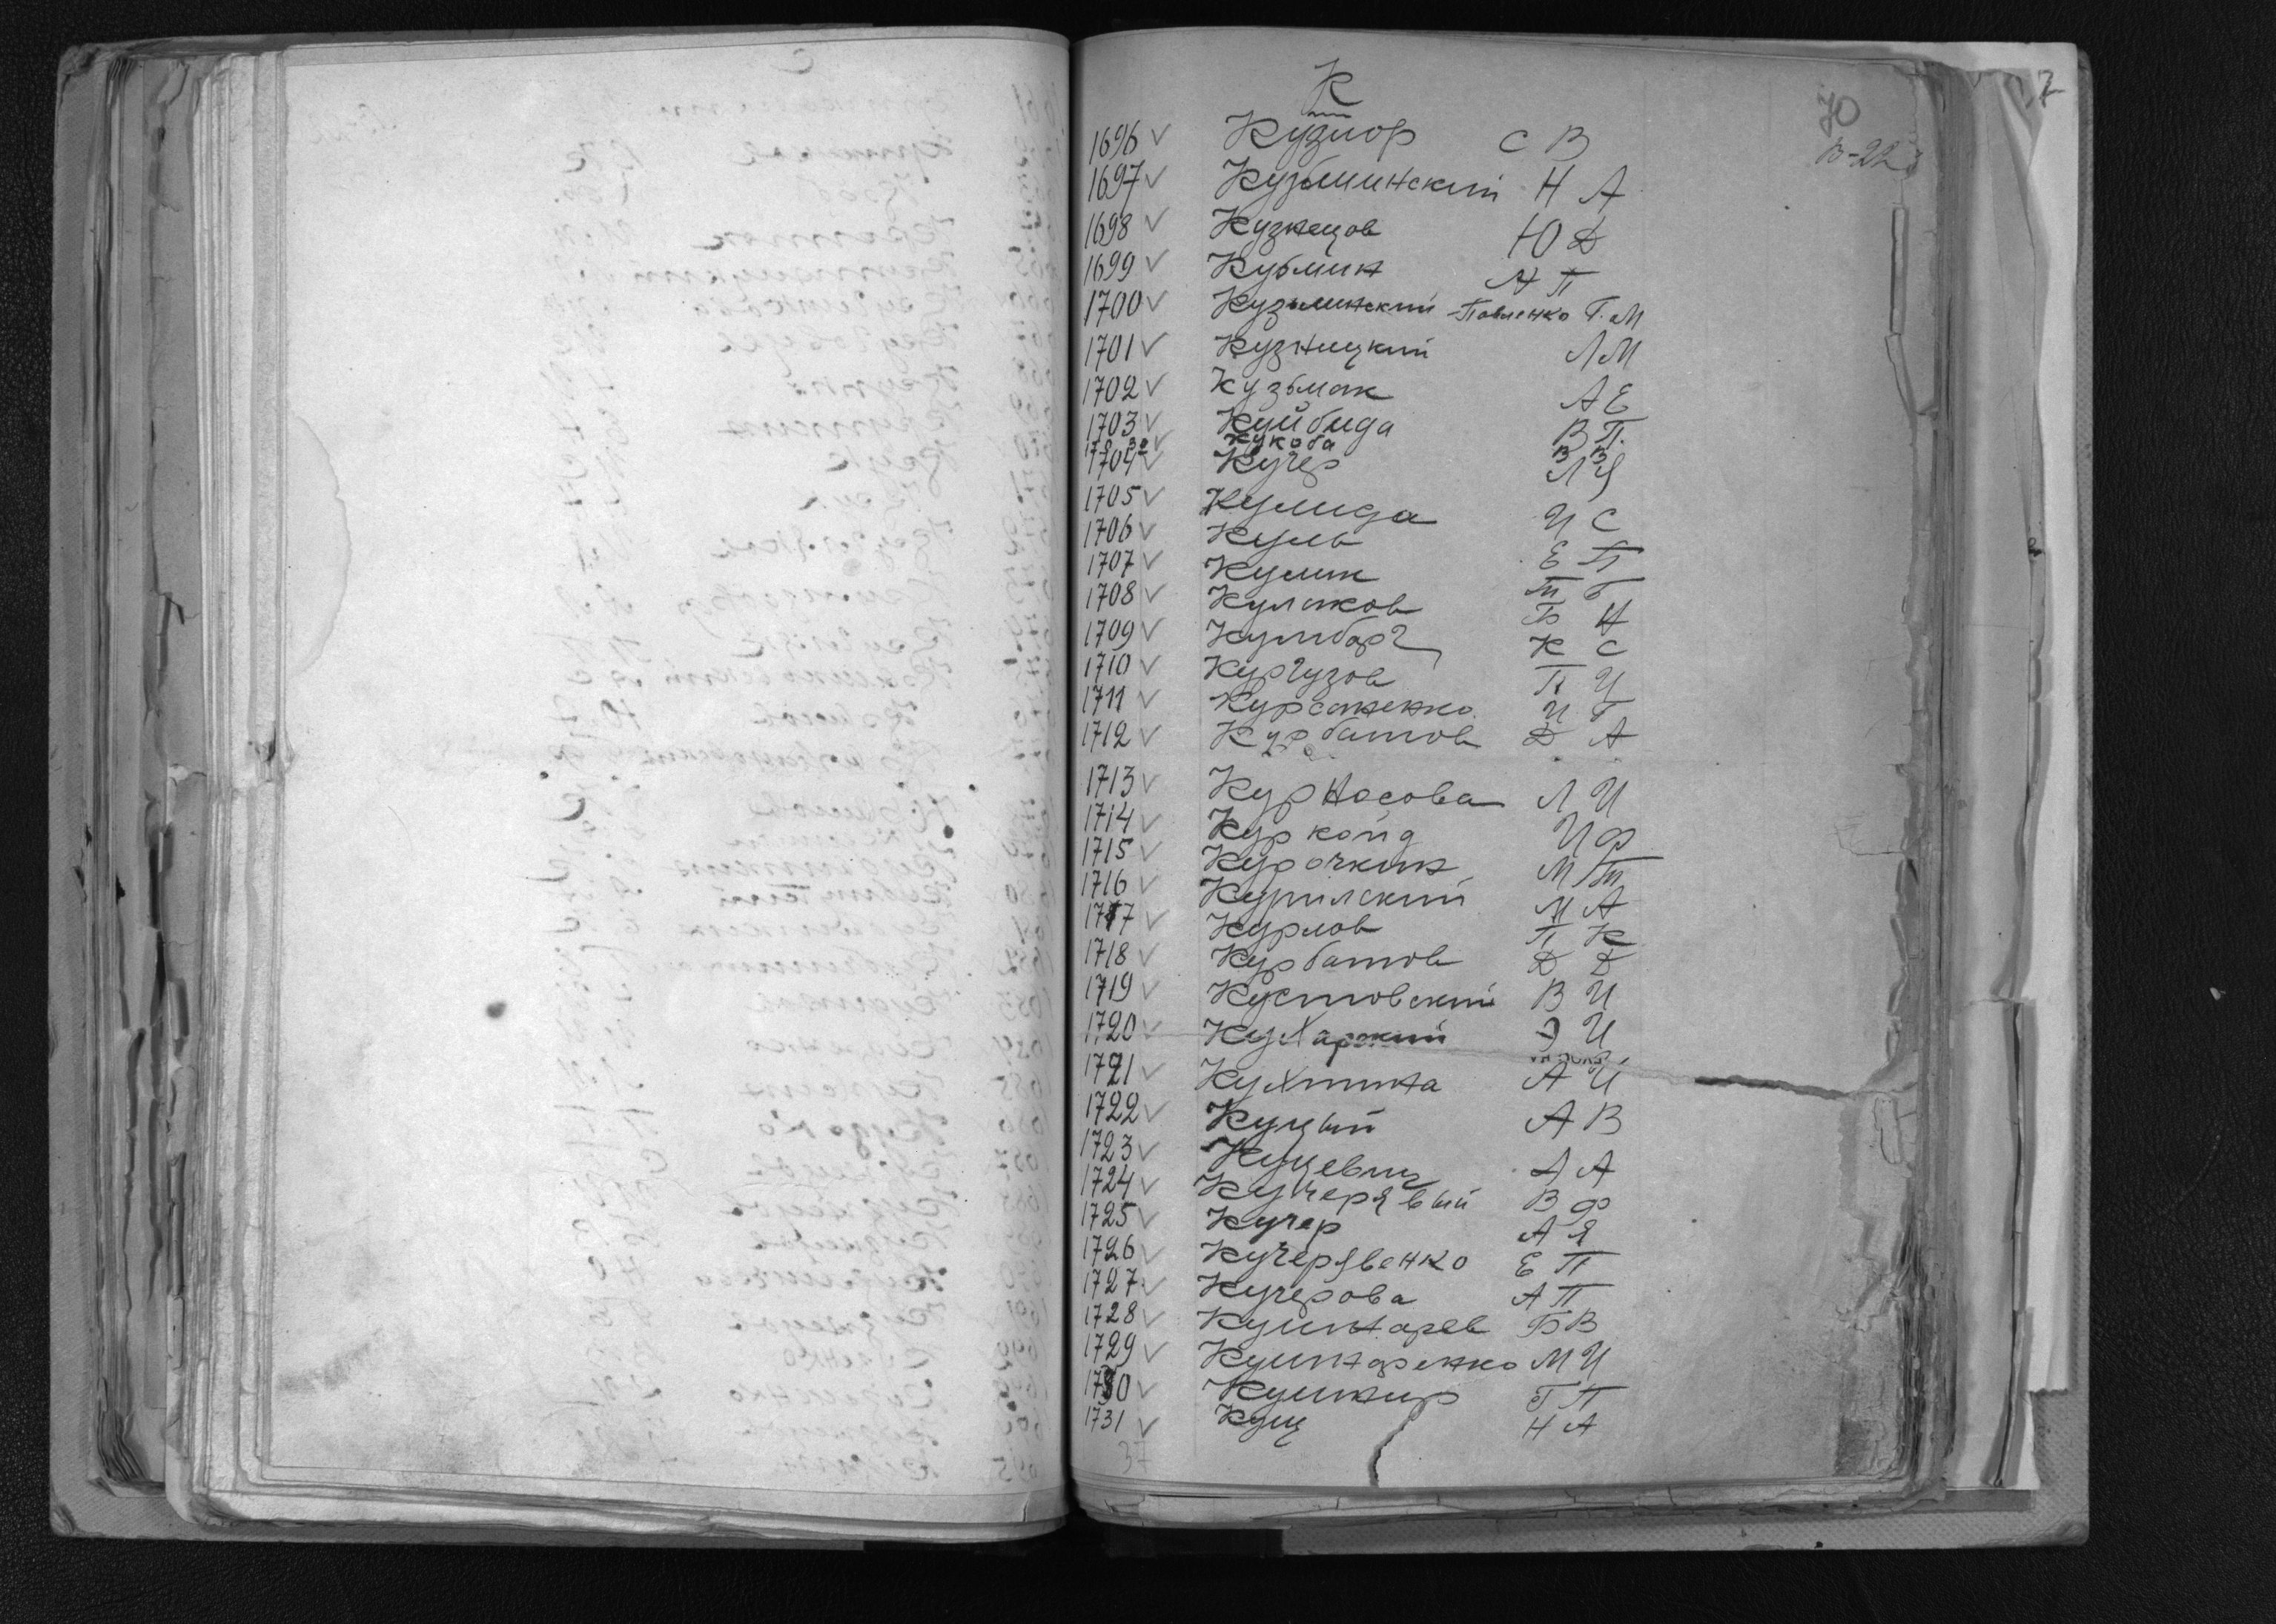 К
70
В-22
1696 ✓ Кузиор С В
1697 ✓ Кузьминский Н А
1698 ✓ Кузнецов Ю Д
1699 ✓ Кузьмин А П
1700 ✓ Кузьминский-Павленко Г. М
1701 ✓ Кузницкий Л М
1702 ✓ Кузьмак А Е
1703 ✓ Куйбида В П.
Кукоба В В
1704 ✓ Кучер Л Я
1705 ✓ Кулида И С
1706 ✓ Куль Е П
1707 ✓ Кулик Т Г
1708 ✓ Кулаков Б Н
1709 ✓ К С
1710 ✓ Кургузов П И
1711 ✓ Курсаненко И Г
1712 ✓ Курбатов Д А
1713 ✓ Курносова Л И
1714 ✓ Куркоид И Ф
1715 ✓ Курочкин М Т
1716 ✓ Курилский М А
1717 ✓ Курлов П К
1718 ✓ Курбатов Д Д
1719 ✓ Кустовский В И
1720 ✓ Кухарский Э И
1721 ✓ Кухтина А И
1722 ✓ Куцый А В
1723 ✓ Куцевич А А
1724 ✓ Кучерявый В Ф
1725 ✓ Кучер А Я
1726 ✓ Кучерявенко Е П
1727 ✓ Кучерова А П
1728 ✓ Кушнарев Б В
1729 ✓ Кушнаренко М И
1730 ✓ Кушнир Г П
1731 ✓ Кущ Н А
37